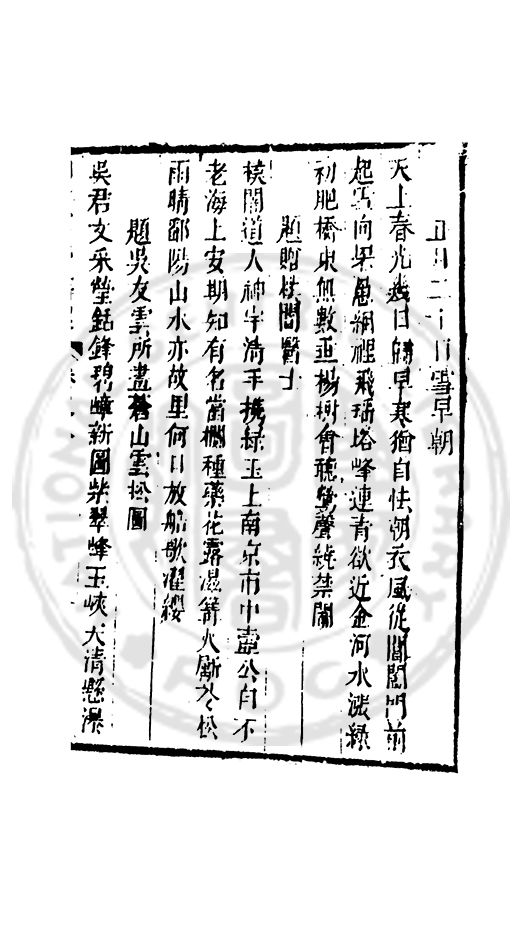 正月二十日雪早朝
天上春光幾日歸早寒猶自怯朝衣風從閶闔門前
起雲向罘罳網裡飛瑤塔峰連青欲近金河水漲綠
初肥橋東無數垂楊樹會聽鶯聲繞禁闈
題贈杜閒醫士
橫閒道人神宇清手攜綠玉上南京市中壺公自不
老海上安期知有名當欄種藥花露濕篝火斸苓松
雨晴鄱陽山水亦故里何日放船歌濯纓
題吳友雲所畫蒼山雲松圖
吳君文采瑩銛鋒碧嶂新圖紫翠峰玉峽大清懸瀑